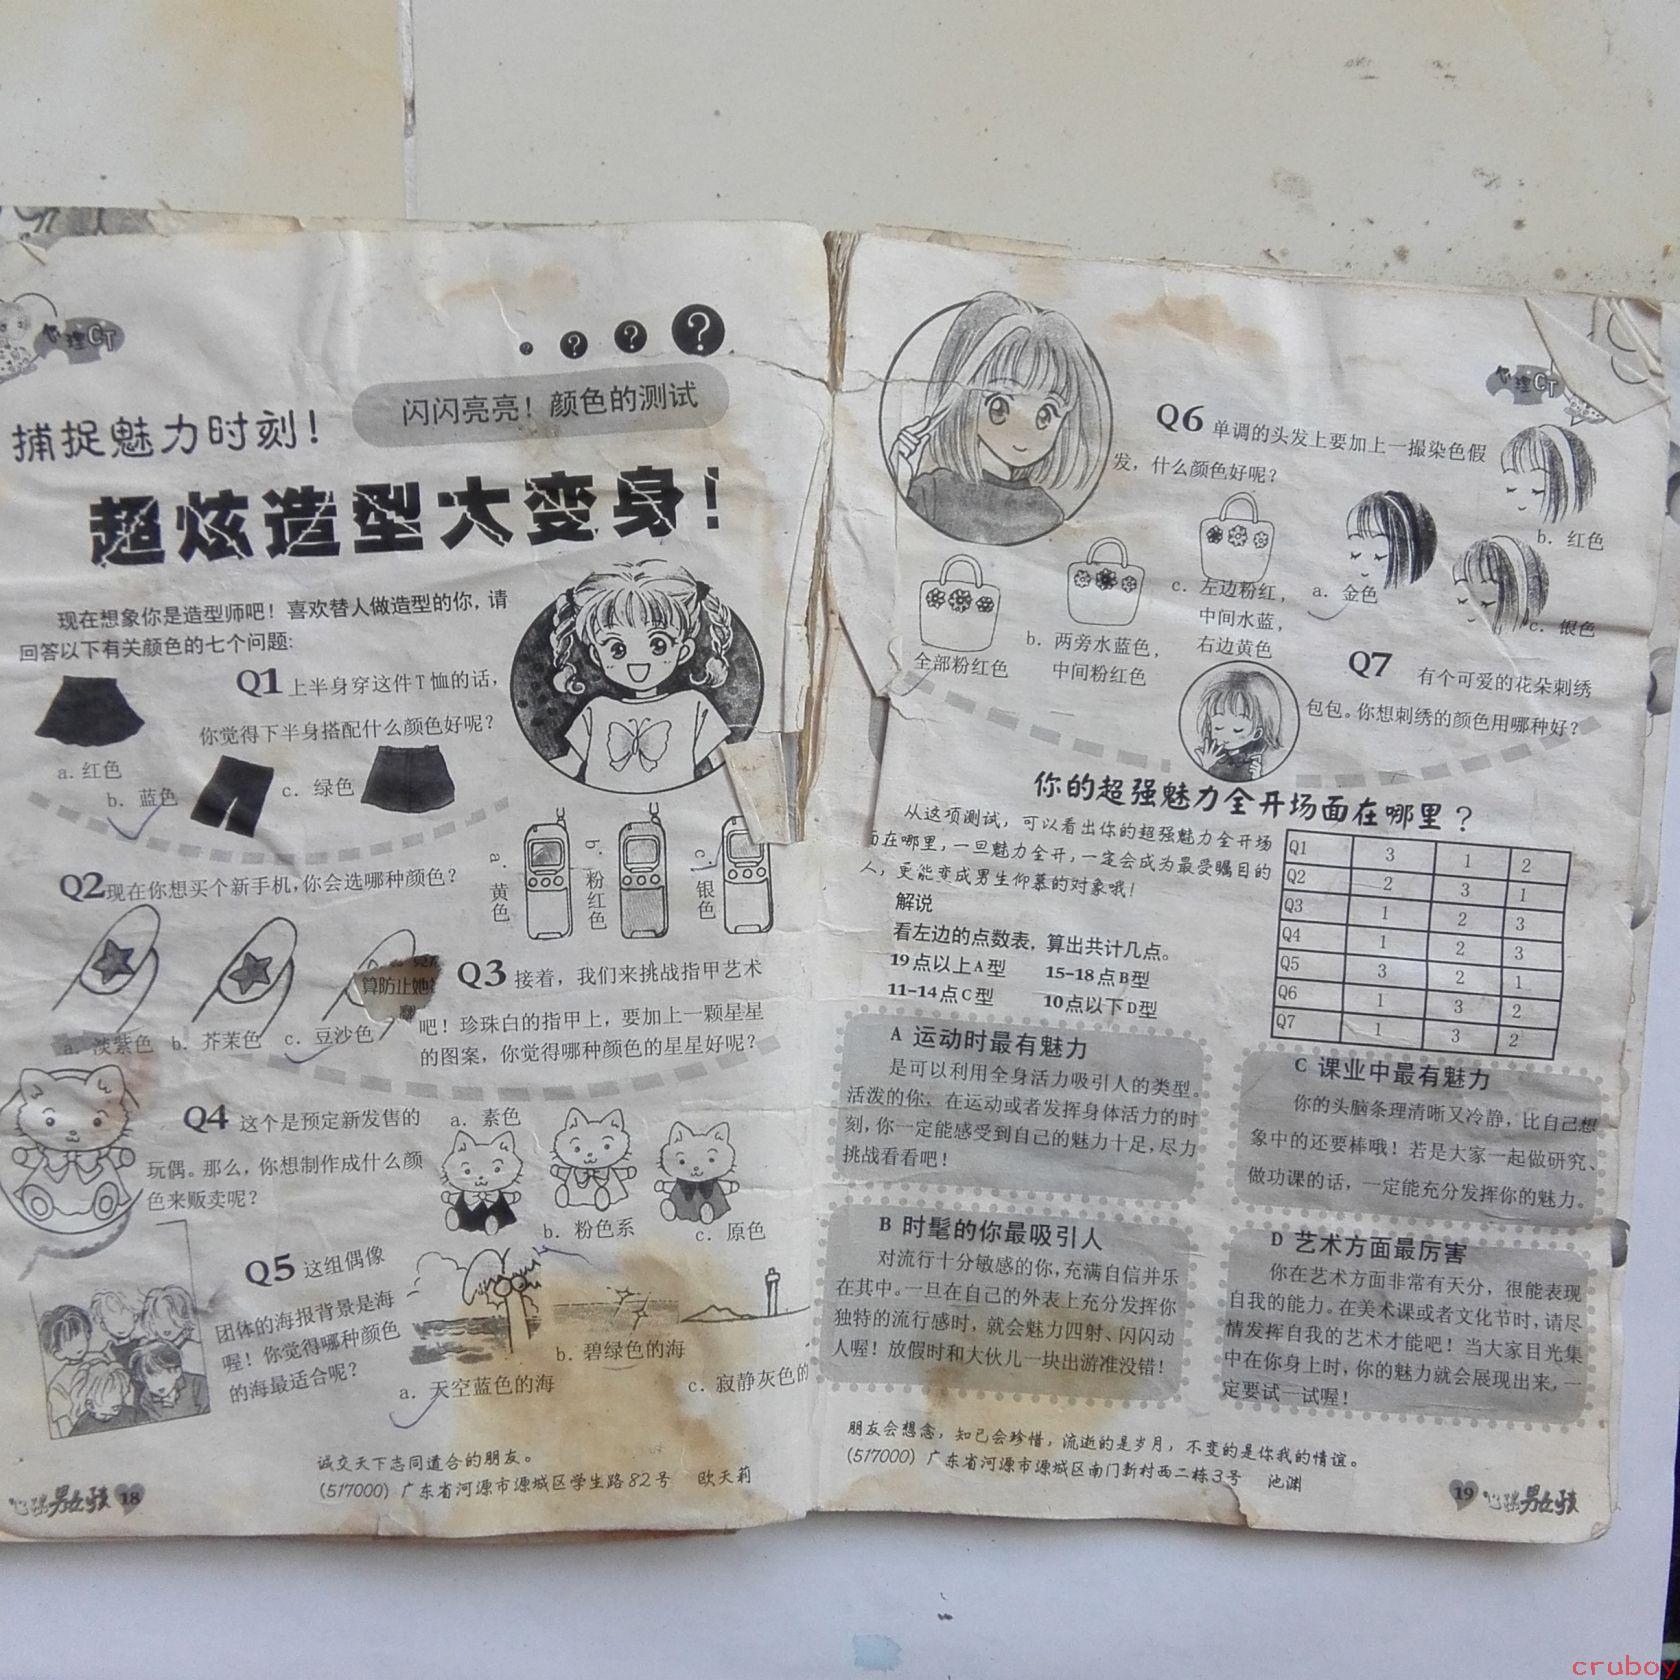 心理CT
? ? ? ?
捕捉魅力时刻！
闪闪亮亮！颜色的测试
超炫造型大变身！
现在想象你是造型师吧！喜欢替人做造型的你，请
回答以下有关颜色的七个问题:
Q1 上半身穿这件T恤的话，
你觉得下半身搭配什么颜色好呢？
a. 红色
b. 蓝色
c. 绿色
Q2 现在你想买个新手机,你会选哪种颜色？
a. 黄色
b. 粉红色
c. 银色
Q3 接着，我们来挑战指甲艺术
吧！珍珠白的指甲上，要加上一颗星星
的图案，你觉得哪种颜色的星星好呢？
算防止她
a. 淡紫色
b. 芥茉色
c. 豆沙色
Q4 这个是预定新发售的
玩偶。那么，你想制作成什么颜
色来贩卖呢？
a. 素色
b. 粉色系
c. 原色
Q5 这组偶像
团体的海报背景是海
喔！你觉得哪种颜色
的海最适合呢？
a. 天空蓝色的海
b. 碧绿色的海
c. 寂静灰色的
诚交天下志同道合的朋友。
(517000) 广东省河源市源城区学生路82号 欧天莉
男女孩 18
心理CT
Q6 单调的头发上要加上一撮染色假
发，什么颜色好呢？
a. 金色
b. 红色
c. 银色
Q7 有个可爱的花朵刺绣
包包。你想刺绣的颜色用哪种好？
全部粉红色
b. 两旁水蓝色，
中间粉红色
c. 左边粉红，
中间水蓝，
右边黄色
你的超强魅力全开场面在哪里？
从这项测试，可以看出你的超强魅力全开场
面在哪里，一旦魅力全开，一定会成为最受瞩目的
人，更能变成男生仰慕的对象哦！
解说
看左边的点数表，算出共计几点。
19点以上A型 15-18点B型
11-14点C型 10点以下D型
Q1 3 1 2
Q2 2 3 1
Q3 1 2 3
Q4 1 2 3
Q5 3 2 1
Q6 1 3 2
Q7 1 3 2
A 运动时最有魅力
是可以利用全身活力吸引人的类型。
活泼的你、在运动或者发挥身体活力的时
刻，你一定能感受到自己的魅力十足，尽力
挑战看看吧！
B 时髦的你最吸引人
对流行十分敏感的你，充满自信并乐
在其中。一旦在自己的外表上充分发挥你
独特的流行感时，就会魅力四射、闪闪动
人喔！放假时和大伙儿一块出游准没错！
C 课业中最有魅力
你的头脑条理清晰又冷静，比自己想
象中的还要棒哦！若是大家一起做研究、
做功课的话，一定能充分发挥你的魅力。
D 艺术方面最厉害
你在艺术方面非常有天分，很能表现
自我的能力。在美术课或者文化节时，请尽
情发挥自我的艺术才能吧！当大家目光集
中在你身上时，你的魅力就会展现出来，一
定要试一试喔！
朋友会想念，知己会珍惜，流逝的是岁月，不变的是你我的情谊。
(517000) 广东省河源市源城区南门新村西二栋3号 池渊
19 男女孩
cruboy